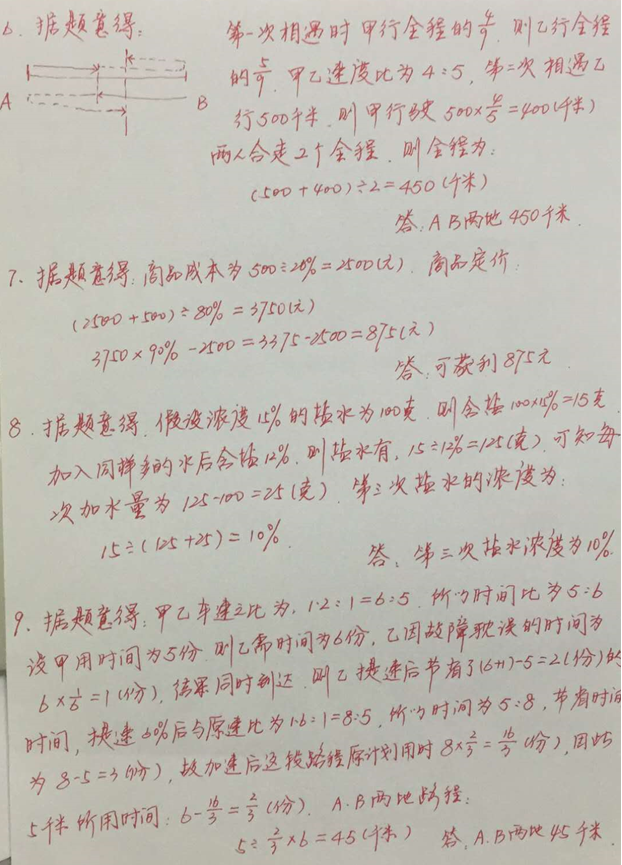 6. 据题意得:
A
B
第一次相遇时甲行全程的4/9, 则乙行全程
的5/9. 甲乙速度比为4:5, 第二次相遇乙
行500千米, 则甲行驶 500×4/5=400(千米)
两人合走2个全程, 则全程为:
(500+400)÷2=450(千米)
答: A B两地450千米.
7. 据题意得: 商品成本为500÷20%=2500(元). 商品定价:
(2500+500)÷80%=3750(元)
3750×90%-2500=3375-2500=875(元)
答: 可获利875元.
8. 据题意得, 假设浓度15%的盐水为100克. 则含盐100×15%=15克
加入同样多的水后含盐12%. 则盐水有, 15÷12%=125(克). 可知每
次加水量为 125-100=25(克). 第三次盐水的浓度为:
15÷(125+25)=10%.
答: 第三次盐水浓度为10%.
9. 据题意得: 甲乙车速之比为, 1.2:1=6:5. 所以时间比为5:6
设甲用时间为5份. 则乙需时间为6份, 乙因故障耽误的时间为
6×1/6=1(份), 结果同时到达. 则乙提速后节省了(6+1)-5=2(份)的
时间, 提速60%后与原速比为1.6:1=8:5, 所以时间为5:8, 节省时间
为 8-5=3(份), 故加速后这段路程原计划用时 8×2/3=16/3(份), 因此
5千米所用时间: 6-16/3=2/3(份). A.B两地路程:
5÷2/3×6=45(千米)
答: A.B两地45千米.